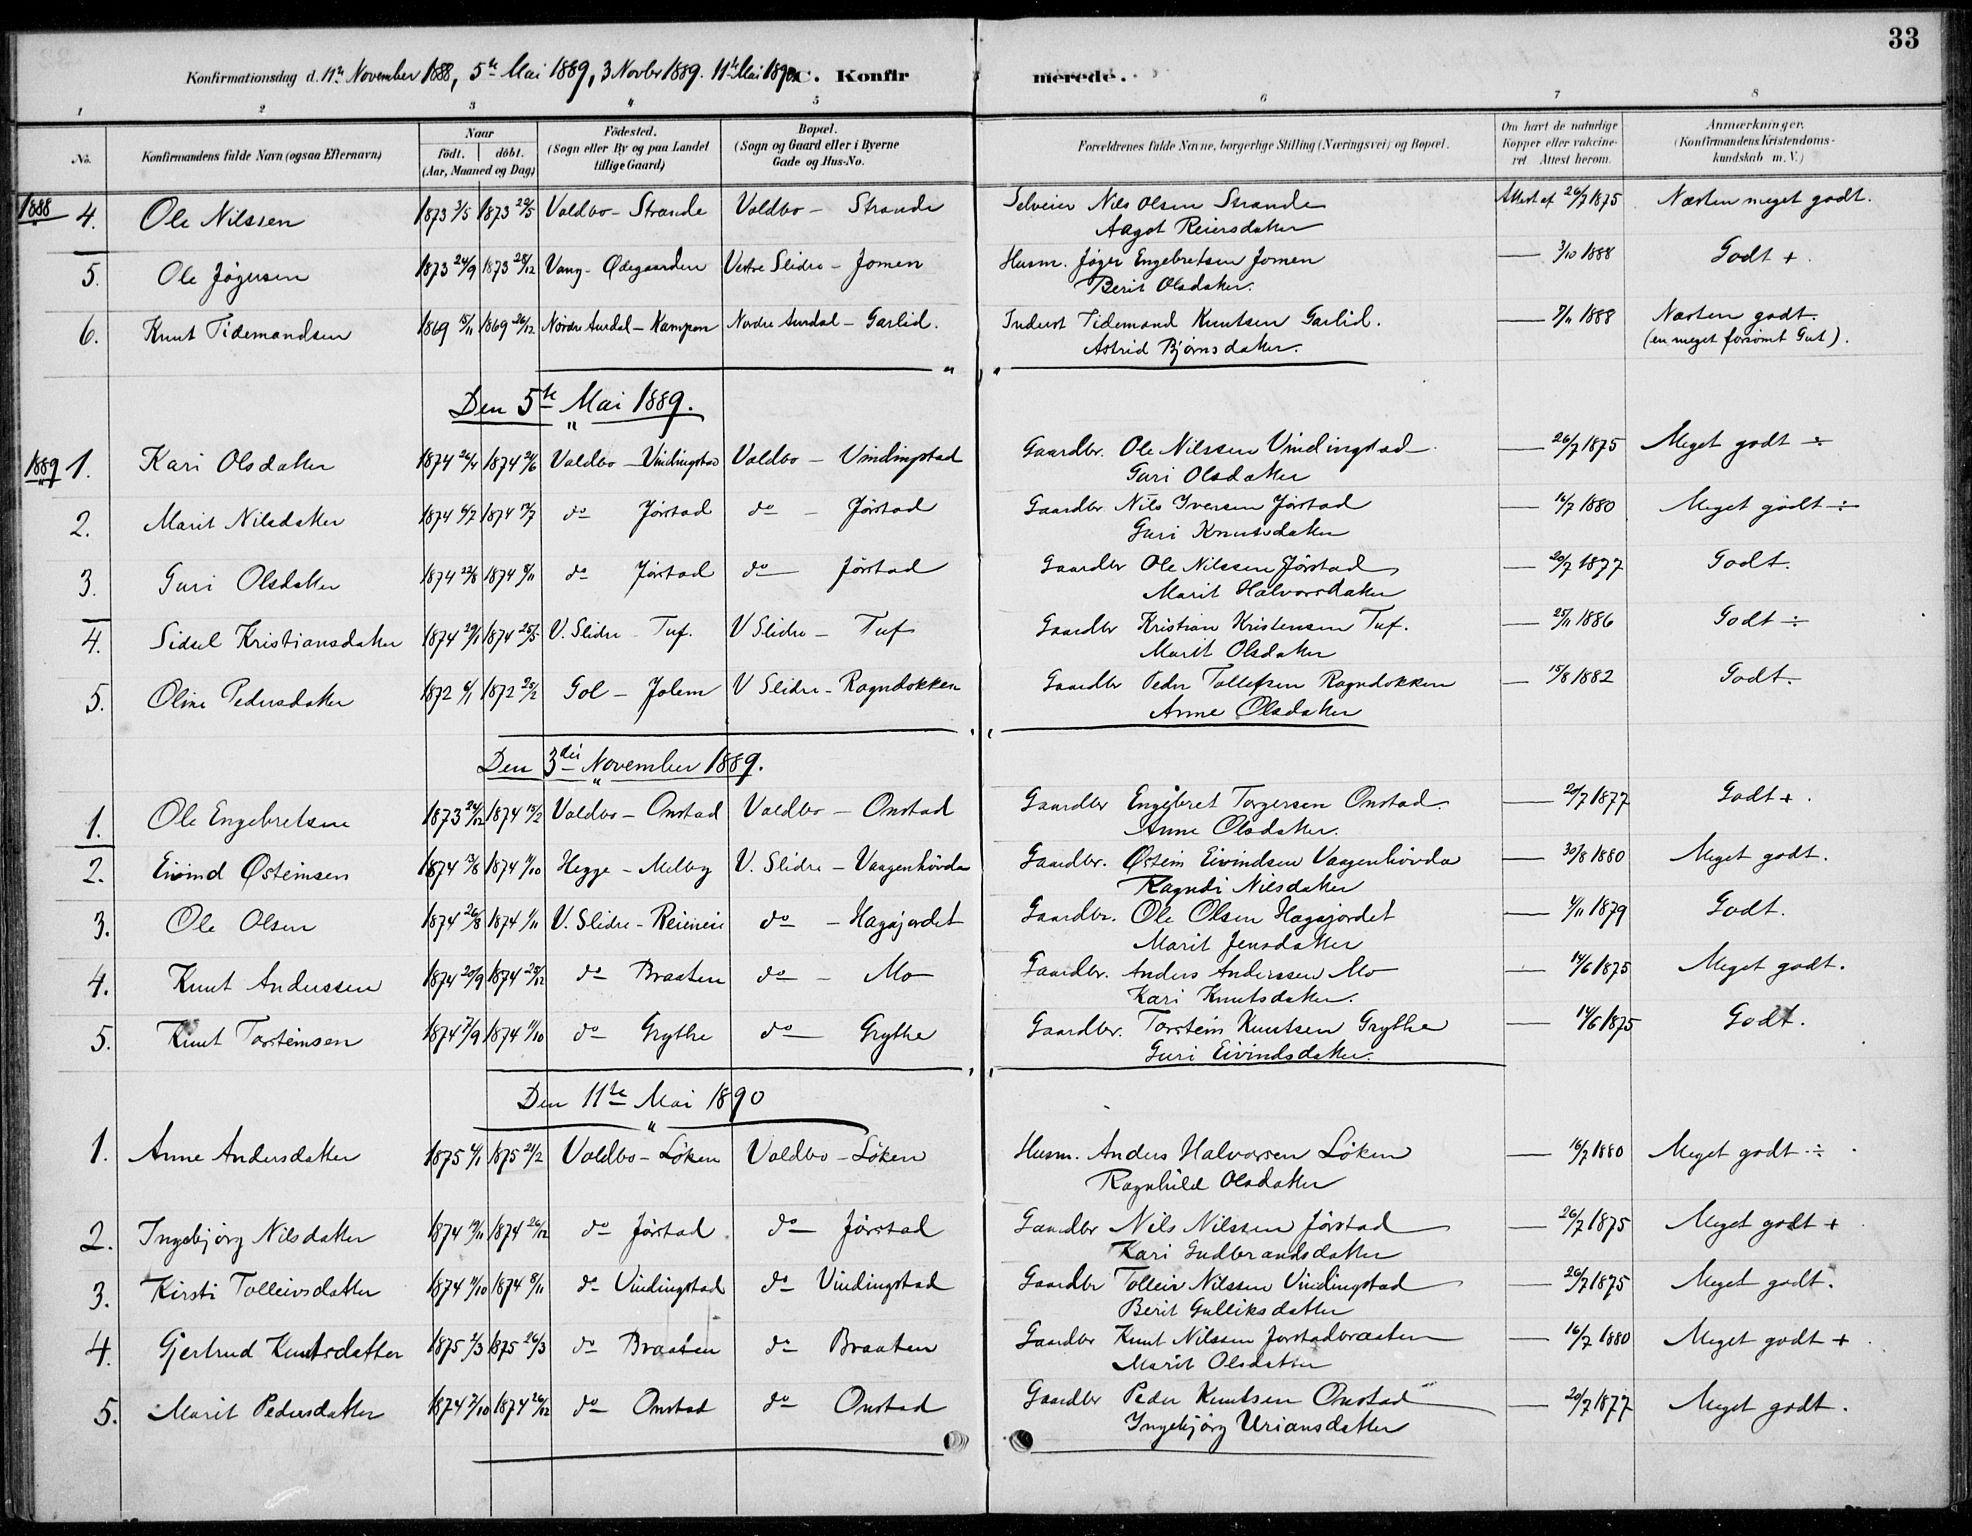 33
Konfirmationsdag d. 11te November 1888, 5te Mai 1889, 3 Novbr 1889. 11te Mai 1890. C. Konfirmerede.
1 2 3 4 5 6 7 8
No. Konfirmandens fulde Navn (ogsaa Efternavn) Naar födt. döbt. (Aar, Maaned og Dag) Födested. (Sogn eller By og paa Landet tillige Gaard) Bopæl. (Sogn og Gaard eller i Byerne Gade og Hus-No. Forældrenes fulde Navne, borgerlige Stilling (Næringsvei) og Bopæl. Om havt de naturlige Kopper eller vakcineret Attest herom. Anmærkninger. (Konfirmandens Kristendomskundskab m. V.)
1888 4. Ole Nilssen 1873 3/5 1873 29/5 Voldbo - Strande Voldbo - Strande Selveier Nils Olsen Strande Attest af 26/7 1875 Næsten meget godt.
Aagot Reiersdatter
5. Ole Jøgersen 1873 24/9 1873 28/12 Vang - Ødegaarden Vestre Slidre - Jomen Husm. Jøger Engebretsen Jomen — 3/10 1888 Godt +.
Berit Olsdatter.
6. Knut Tidemandsen 1869 15/11 1869 26/12 Nordre Aurdal - Kampen Nordre Aurdal - Garlid. Inderst Tidemand Knutsen Garlid. — 7/11 1888 Næsten godt.
Astrid Bjørnsdatter. (en meget forsømt Gut).
Den 5te Mai 1889.
1889 1. Kari Olsdatter 1874 26/4 1874 21/6 Voldbo - Vindingstad Voldbo - Vindingstad Gaardbr. Ole Nilssen Vindingstad — 26/7 1875 Meget godt ÷
Guri Olsdatter
2. Marit Nilsdatter 1874 6/7 1874 19/7 do Jørstad do - Jørstad Gaardbr. Nils Iversen Jørstad — 16/7 1880 Meget godt ÷
Guri Knutsdatter
3. Guri Olsdatter 1874 22/8 1874 8/11 do Jørstad do - Jørstad Gaardbr Ole Nilssen Jørstad — 20/7 1877 Godt.
Marit Halvorsdatter
4. Sidsel Kristiansdatter 1874 29/1 1874 25/5 V. Slidre - Tuf. V Slidre - Tuf Gaardbr Kristian Kristensen Tuf. — 25/11 1886 Godt ÷
Marit Olsdatter
5. Oline Pedersdatter 1872 6/1 1872 25/2 Gol - Jolem V Slidre - Rogndokken Gaardbr Peder Tollefsen Rogndokken — 15/8 1882 Godt.
Anne Olsdatter
Den 3die November 1889.
1. Ole Engebretsen 1873 24/12 1874 15/2 Voldbo - Onstad Voldbo - Onstad Gaardbr Engebret Torgersen Onstad — 20/7 1877 Godt +.
Anne Olsdatter.
2. Eivind Østeinsen 1874 13/8 1874 11/10 Hegge - Melby V. Slidre - Vangenhövda Gaardbr. Østein Eivindsen Vangenhövda — 30/8 1880 Meget godt.
Ragndi Nilsdatter
3. Ole Olsen 1874 26/8 1874 1/11 V. Slidre - do - Hagajordet Gaardbr. Ole Olsen Hagajordet — 4/11 1879 Godt.
Marit Jensdatter
4. Knut Anderssen 1874 20/9 1874 29/12 do Braaten do - Mo Gaardbr. Anders Anderssen Mo — 14/6 1875 Meget godt.
Kari Knutsdatter.
5. Knut Torsteinsen 1874 7/9 1874 11/10 do Grythe do - Grythe Gaardbr. Torstein Knutsen Grythe — 14/6 1875 Godt.
Guri Eivindsdatter.
Den 11te Mai 1890
1. Anne Andersdatter 1875 4/1 1875 21/2 Voldbo - Løken Voldbo - Løken Husm. Anders Halvorsen Løken — 16/7 1880 Meget godt ÷
Ragnhild Olsdatter
2. Ingebjørg Nilsdatter 1874 19/11 1874 26/12 do Jørstad do - Jørstad Gaardbr Nils Nilssen Jørstad — 26/7 1875 Meget godt +
Kari Gudbrandsdatter
3. Kirsti Tolleivsdatter 1874 11/10 1874 8/11 do Vindingstad do Vindingstad Gaardbr Tolleiv Nilssen Vindingstad — 26/7 1875 Meget godt.
Berit Gulliksdatter
4. Gjertrud Knutsdatter 1875 2/3 1875 26/3 do Braaten do Braaten Gaardbr Knut Nilssen Jørstadbraaten — 16/7 1880 Meget godt +
Marit Olsdatter
5. Marit Pedersdatter 1874 7/10 1874 26/12 do Onstad do Onstad Gaardbr Peder Knutsen Onstad — 20/7 1877 Meget godt.
Ingebjørg Uriansdatter